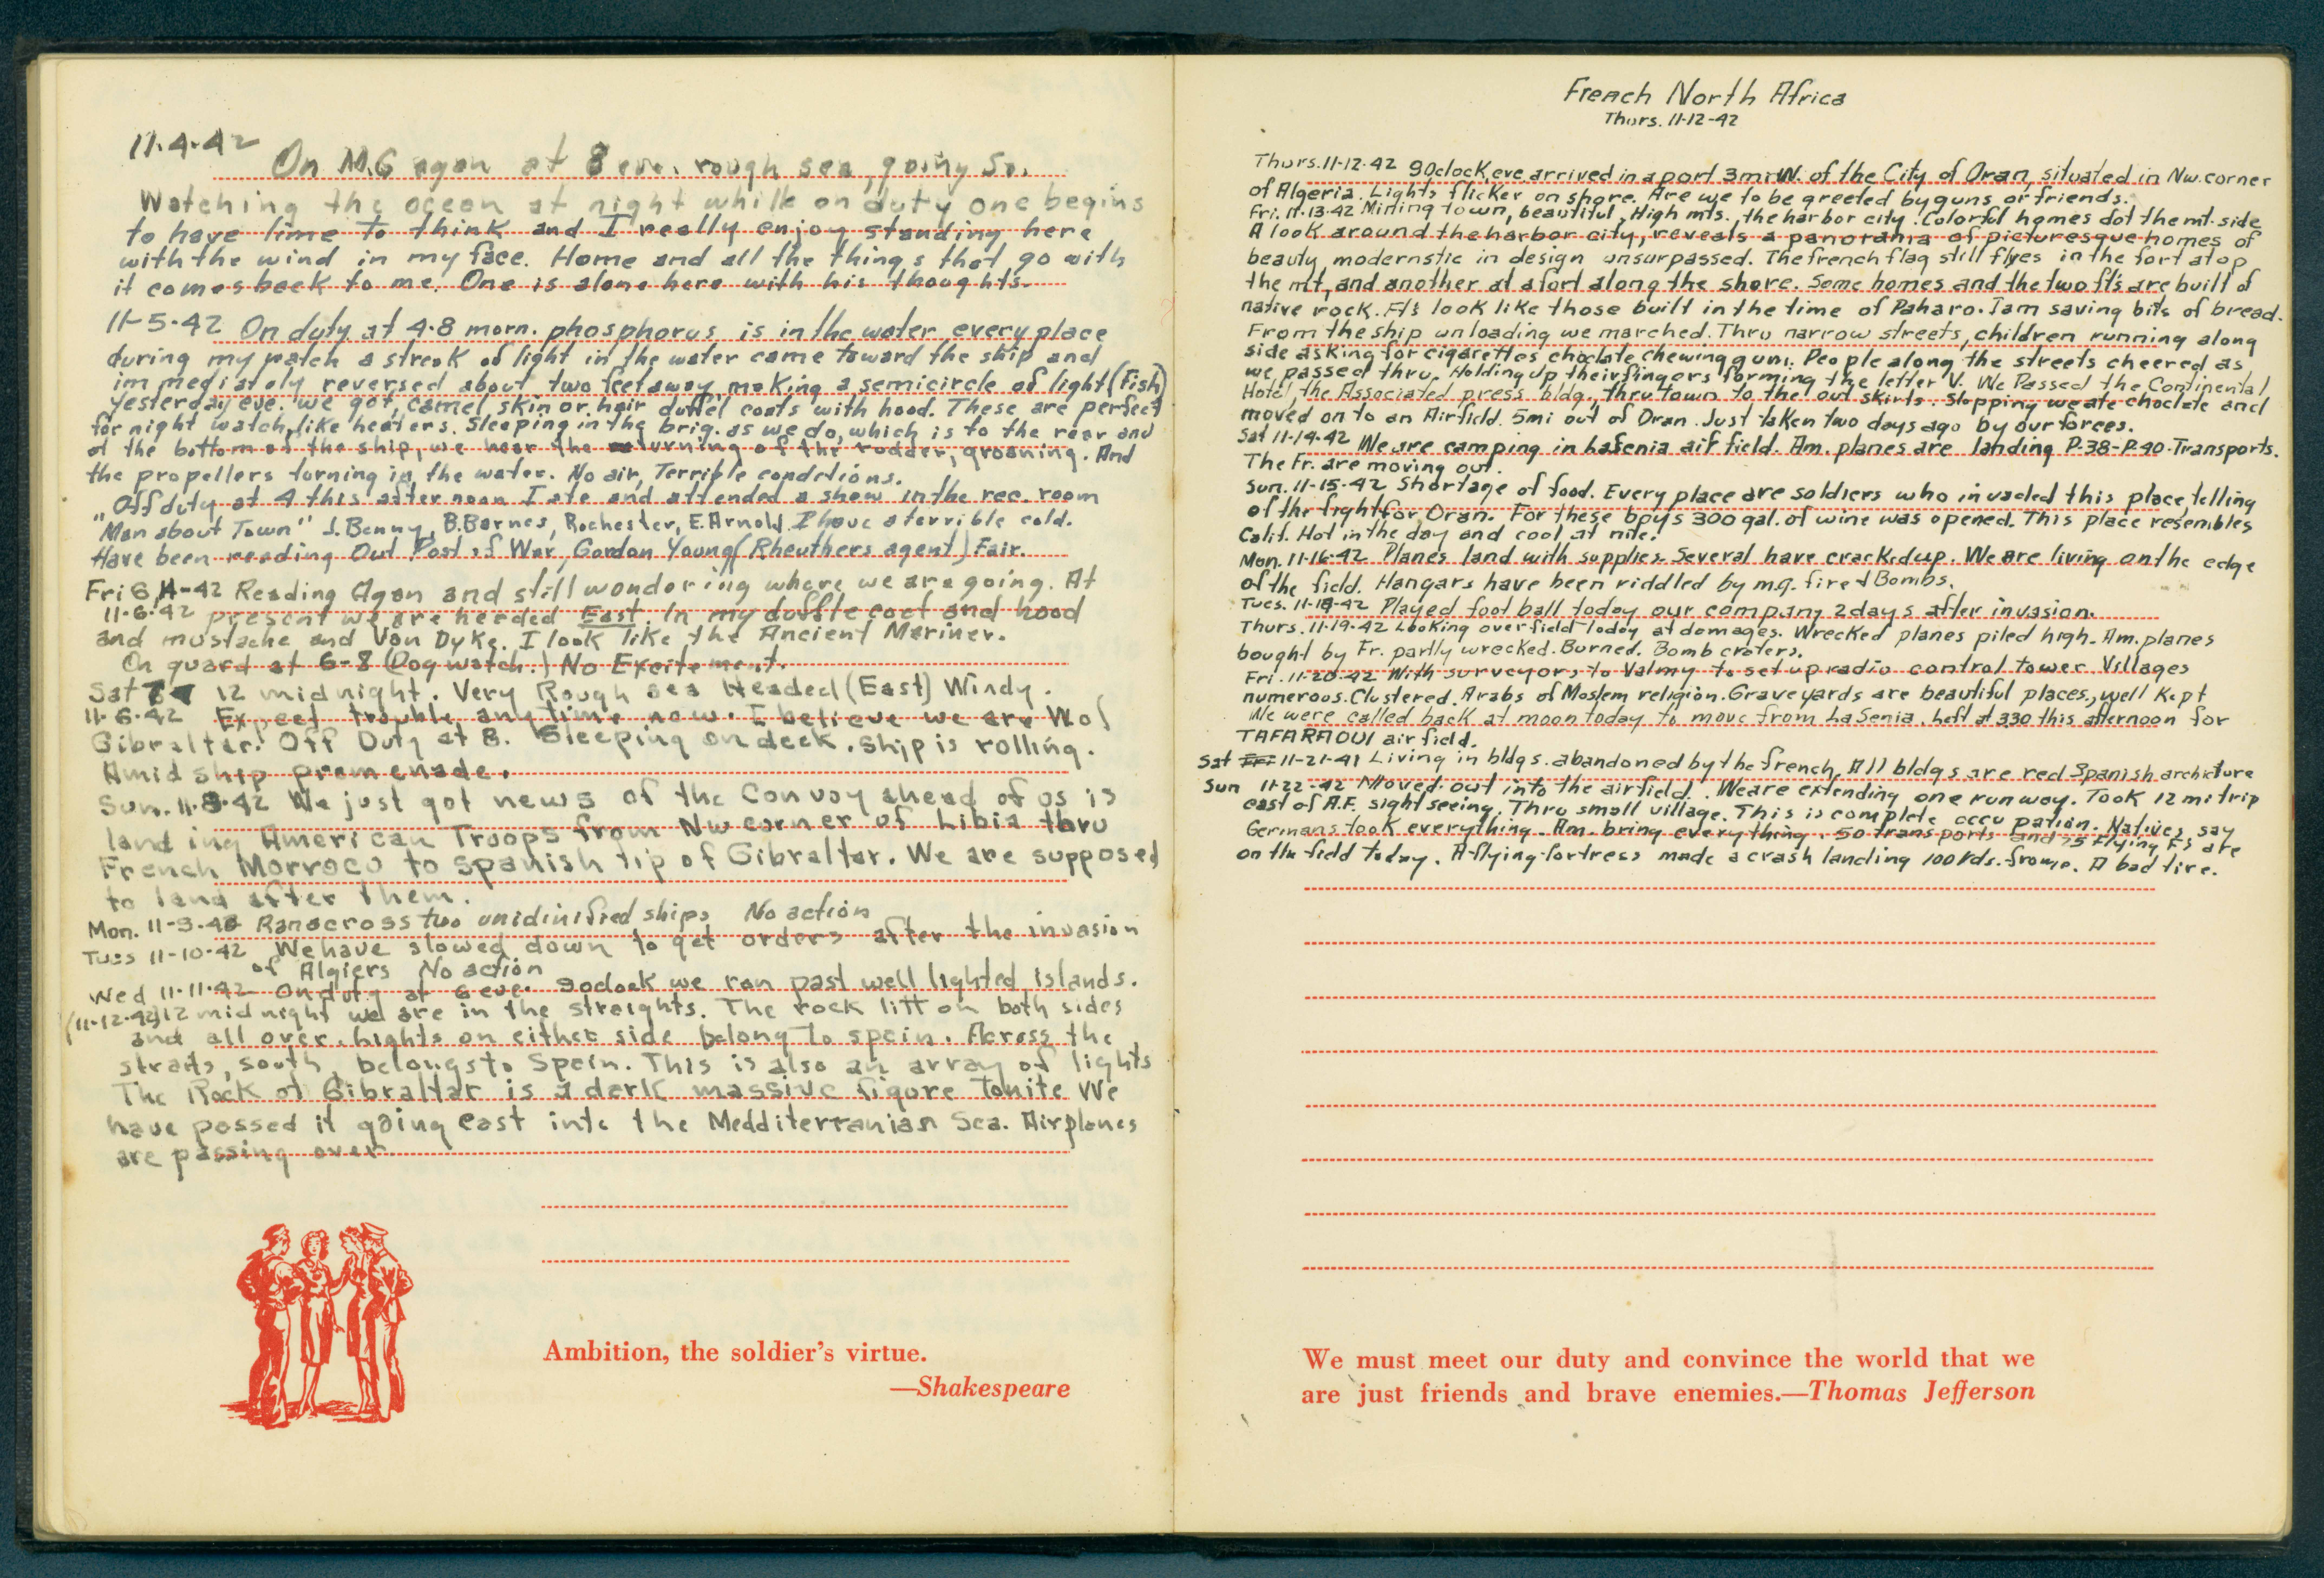 11-4-42
On M.G agan at 8 eve. rough sea, going So.
Watching the ocean at night whille on duty one begins
to have time to think and I really enjoy standing here
with the wind in my face. Home and all the things that go with
it comes back to me. One is alone here with his thoughts.
11-5-42 On duty at 4-8 morn. phosphorus is in the water every place
during my watch a streak of light in the water came toward the ship and
immediately reversed about two feet away, making a semicircle of light (Fish)
Yesterday eve. we got, camel skin or hair duffel coats with hood. These are perfect
for night watch, like heaters. Sleeping in the brig. as we do, which is to the rear and
at the bottom of the ship, we hear the turning of the rudder, groaning. And
the propellers torning in the water. No air, Terrible condetions.
Off duty at 4 this afternoon I ate and attended a show in the rec. room
"Man about Town" J. Benny, B. Barnes, Rochester, E. Arnold. I have a terrible cold.
Have been reading Out Post of War, Gordon Young (Rheuthers agent) Fair.
Fri 6 11-42 Reading Agan and still wondering where we are going. At
11-6-42 present we are headed East. In my duffle coat and hood
and mustache and Van Dyke. I look like the Ancient Mariner.
On guard at 6-8 (Dog watch.) No Excitement.
Sat 12 midnight. Very Rough sea Headed (East) Windy.
11-6-42 Expect trouble anytime now. I believe we are W of
Gibraltar. Off Duty at 8. Sleeping on deck. Ship is rolling.
Amid ship promenade.
Sun. 11-8-42 We just got news of the Convoy ahead of us is
landing American Troops from NW corner of Libia thru
French Morroco to Spanish tip of Gibraltar. We are supposed
to land after them.
Mon. 11-9-42 Ran across two unidinified ships No action
Tues 11-10-42 We have slowed down to get orders after the invasion
of Algiers No action
Wed 11-11-42 On duty at 6 eve. 9 oclock we ran past well lighted islands.
(11-12-42) 12 mid night we are in the straights. The rock litt on both sides
and all over. Lights on either side belong to spein. Across the
straits, south, belongs to Spein. This is also an array of lights
The Rock of Gibraltar is a dark massive figore tonite We
have possed it going east into the Medditerranian Sea. Airplanes
are passing over
Ambition, the soldier's virtue.
—Shakespeare
French North Africa
Thurs. 11-12-42
Thurs. 11-12-42 9 Oclock eve arrived in a port 3 mi W. of the City of Oran, situated in Nw. corner
of Algeria. Lights flicker on shore. Are we to be greeted by guns or friends.
Fri. 11-13-42 Mining town, beautiful, High mts., the harbor city. Colorful homes dot the mt. side
A look around the harbor city, reveals a panorama of picturesque homes of
beauty modernstic in design unsurpassed. The french flag still flyes in the fort atop
the mt, and another at a fort along the shore. Some homes and the two fts are built of
native rock. Fts look like those built in the time of Paharo. I am saving bits of bread.
From the ship unloading we marched. Thru narrow streets, children running along
side asking for cigarettes choclate chewing gum. People along the streets cheered as
we passed thru. Holding up their fingers forming the letter V. We Passed the Continental
Hotel, the Associated press bldg., thru town to the out skirts. Stopping we ate choclate and
moved on to an Airfield. 5mi out of Oran. Just taken two days ago by our forces.
Sat 11-14-42 We are camping in LaSenia air field. Am. planes are landing P-38-P-40-Transports.
The Fr. are moving out.
Sun. 11-15-42 Shortage of food. Every place are soldiers who invaded this place, telling
of the fight for Oran. For these boys 300 gal. of wine was opened. This place resembles
Calif. Hot in the day and cool at nite.
Mon. 11-16-42 Planes land with supplies. Several have cracked up. We are living on the edge
of the field. Hangars have been riddled by m.g. fire & Bombs.
Tues. 11-18-42 Played foot ball today our company 2 days after invasion.
Thurs. 11-19-42 Looking over field today at damages. Wrecked planes piled high. Am. planes
bought by Fr. partly wrecked. Burned. Bomb craters.
Fri. 11-20-42 With surveyors to Valmy to set up radio control tower. Villages
numerous. Clustered. Arabs of Moslem religion. Grave yards are beautiful places, well kept
We were called back at moon today to move from La Senia. Left at 330 this afternoon for
TAFARAOUI air field.
Sat 11-21-41 Living in bldgs. abandoned by the french. All bldgs are red Spanish archicture
Sun 11-22-42 Moved out into the airfield. We are extending one runway. Took 12 mi trip
east of A.F. sight seeing. Thru small village. This is complete occupation. Natives say
Germans took everything. Am. bring everything. 50 transports and 25 flying Fs are
on the field today. A flying fortress made a crash landing 100 Yds. from me. A bad tire.
We must meet our duty and convince the world that we
are just friends and brave enemies.—Thomas Jefferson